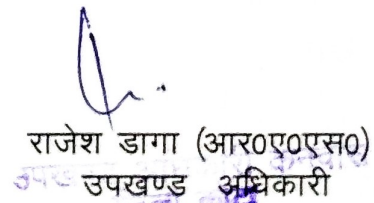 राजेश डागा (आर०ए०एस०)
उपखण्ड अधिकारी